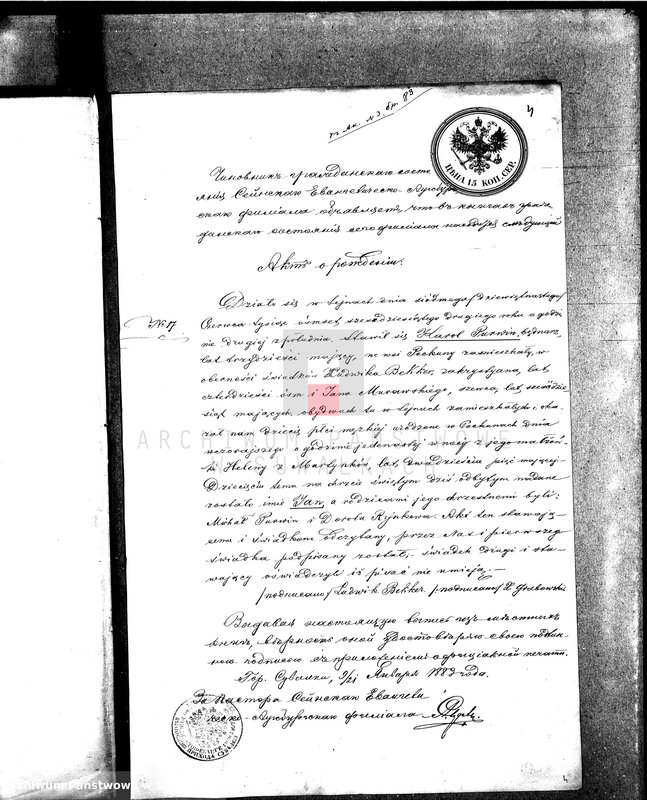 къ Ак. № 9. бр. 83
4
ЦѢНА 15 КОП. СЕР.
Чиновникъ гражданскаго состо
янія Сейнскаго Евангелическо-Аугсбург
скаго филіала объявляетъ, что въ книгахъ граж
данскаго состоянія сего филіала находится слѣдующій
Актъ о рожденіи:
№ 17
Działo się w Sejnach dnia siódmego /dziewiętnastego/
Czerwca tysiąc ośmset sześćdziesiątego drugiego roku o godzi
nie drugiej z południa. Stawił się Karol Purwin, bednarz,
lat trzydzieści mający, we wsi Pochuny zamieszkały, w
obecności świadków Ludwika Bekker, zakrystyana, lat
czterdzieści ósm i Jana Murawskiego, szewca, lat sześćdzie
siąt mających, obydwóch tu w Sejnach zamieszkałych i oka
zał nam dziecię płci męzkiej urodzone w Pochunach dnia
wczorajszego o godzinie jedenastej w nocy z jego małżon
ki Heleny z Martynków, lat dwadzieścia pięć mającej
Dziecięciu temu na chrzcie świętym dziś odbytym nadane
zostało imie Jan, a rodzicami jego chrzestnemi byli:
Michał Purwin i Dorota Rynkowa. Akt ten stawają-
cemu i świadkom odczytany, przez Nas i pierwszego
świadka podpisany został, świadek drugi i sta-
wający oświadczyli iż pisać nie umieją.—
/podpisano/ Ludwik Bekker. /podpisano/ X Grabowski
Выдавая настоящую выпись изъ мѣстныхъ
книгъ, вѣрность оной удостовѣряю своею подпи
ною подписью съ приложеніемъ официальной печати.
Гор. Сувалки, 9/21 Января 1883 года.
За Пастора Сейнскаго Евангели
ческо-Аугсбургскаго филіала
ARCHIWUM PAŃSTWOWE
W SUWAŁKACH
Archiwum Państwowe w